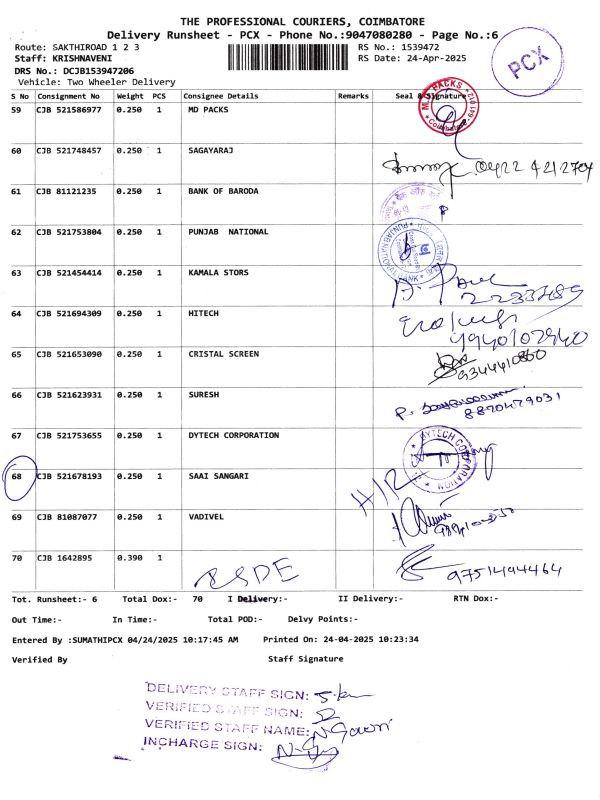 THE PROFESSIONAL COURIERS, COIMBATORE
Delivery Runsheet - PCX - Phone No.:9047080280 - Page No.:6
Route: SAKTHIROAD 1 2 3 RS No.: 1539472
Staff: KRISHNAVENI RS Date: 24-Apr-2025
PCX
DRS No.: DCJB153947206
Vehicle: Two Wheeler Delivery
S No Consignment No Weight PCS Consignee Details Remarks Seal & Signature
59 CJB 521586977 0.250 1 MD PACKS
60 CJB 521748457 0.250 1 SAGAYARAJ 0422 4212704
61 CJB 81121235 0.250 1 BANK OF BARODA
62 CJB 521753804 0.250 1 PUNJAB NATIONAL
63 CJB 521454414 0.250 1 KAMALA STORS
64 CJB 521694309 0.250 1 HITECH
65 CJB 521653090 0.250 1 CRISTAL SCREEN
66 CJB 521623931 0.250 1 SURESH
67 CJB 521753655 0.250 1 DYTECH CORPORATION DYTECH CORPORATION
68 CJB 521678193 0.250 1 SAAI SANGARI
69 CJB 81087077 0.250 1 VADIVEL
70 CJB 1642895 0.390 1 9751494464
Tot. Runsheet:- 6 Total Dox:- 70 I Delivery:- II Delivery:- RTN Dox:-
Out Time:- In Time:- Total POD:- Delvy Points:-
Entered By :SUMATHIPCX 04/24/2025 10:17:45 AM Printed On: 24-04-2025 10:23:34
Verified By Staff Signature
DELIVERY STAFF SIGN:
VERIFIED STAFF SIGN:
VERIFIED STAFF NAME: N Gowri
INCHARGE SIGN: